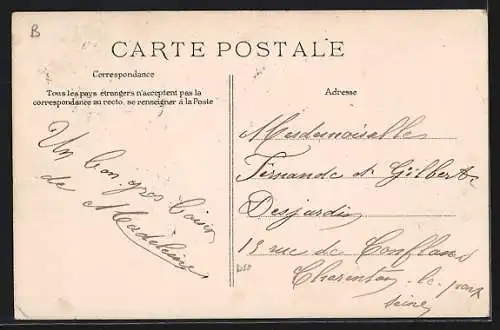 B
CARTE POSTALE
Correspondance
Tous les pays étrangers n'acceptent pas la
correspondance au recto, se renseigner à la Poste
Un bon gros baiser
de Madeleine
Adresse
Mesdemoiselles
Fernande et Gilberte
Desjardin
13 rue de Conflans
Charenton le pont
Seine